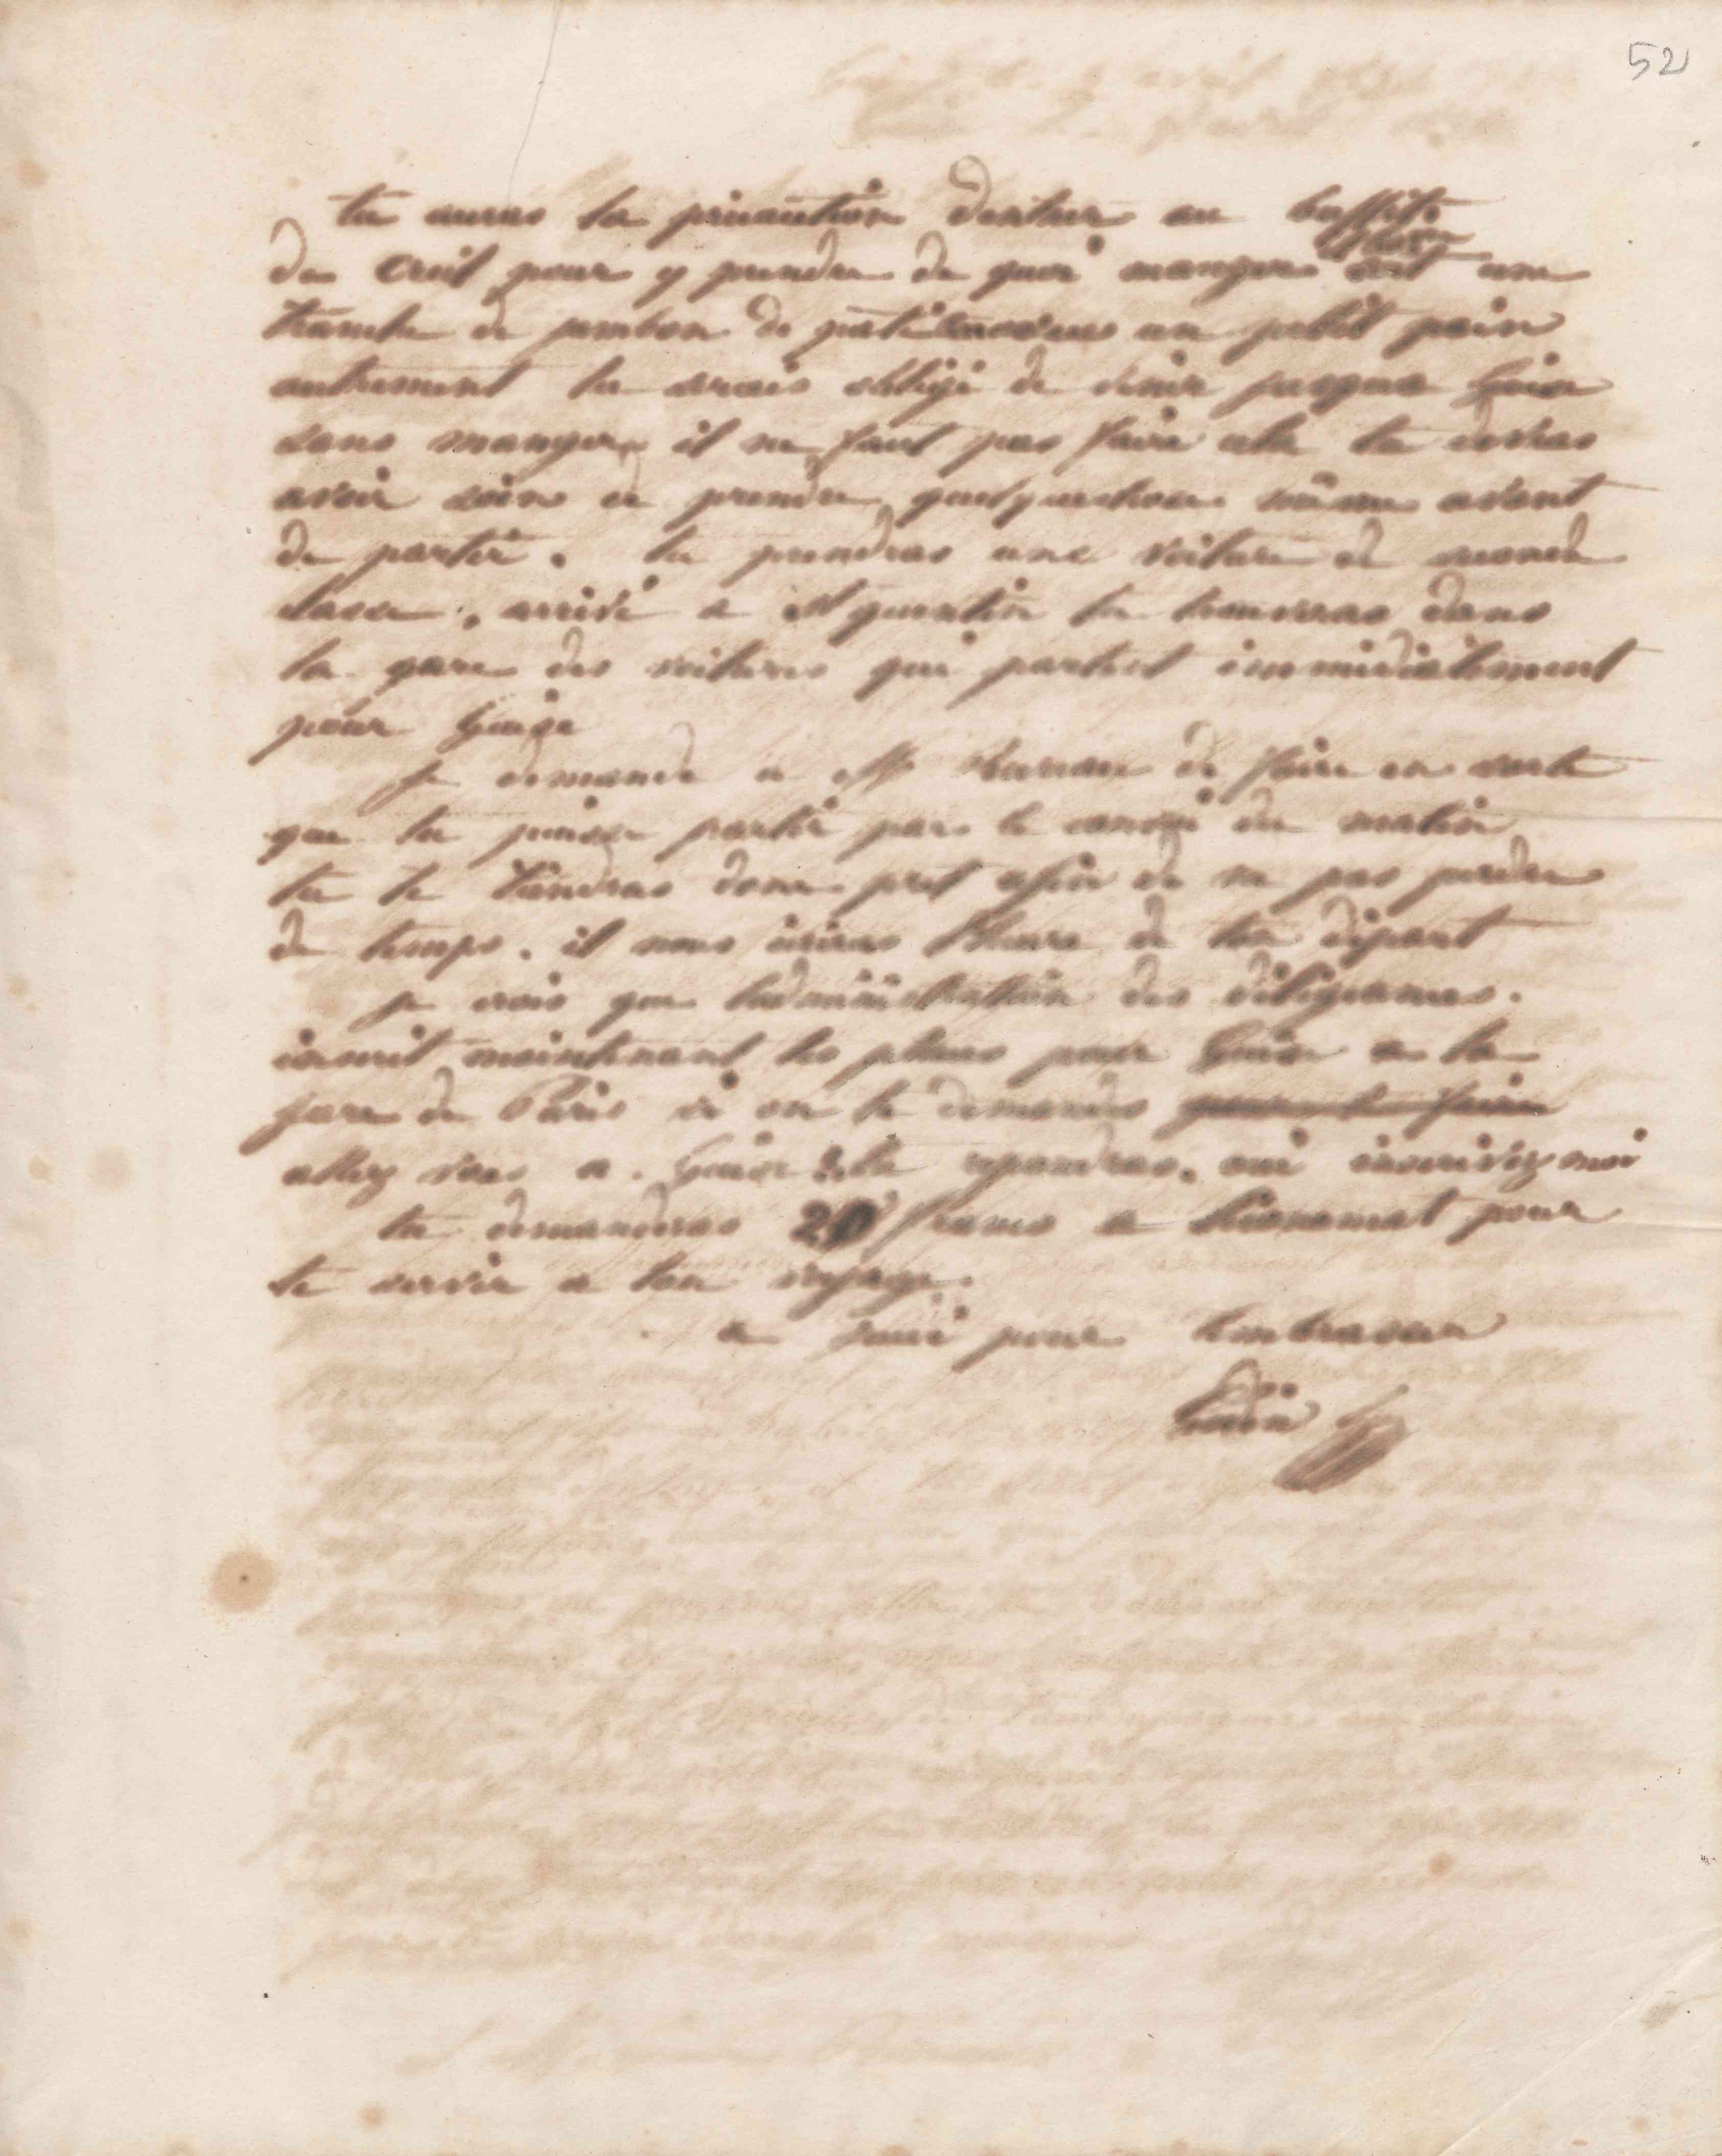 52
tu auras la précaution dentrer au buffet
de Creil pour y prendre de quoi manger soit une
tranche de jambon de paté un petit pain
autrement tu serais obligé de venir jusqua Guise
sans manger il ne faut pas faire cela tu devras
avoir soin de prendre quelquechose même avant
de partir. tu prendras une voiture de seconde
classe. arrivé a St quentin tu trouveras dans
la gare des voitures qui partent immédiatement
pour Guise
je demande a Mr de faire en sorte
que tu puisse partir par le convoi du matin
tu te tiendras donc pret afin de ne pas perdre
de temps. il nous écrira l'heure de ton départ
je crois que ladministration des diligences.
inscrit maintenant les places pour Guise a la
gare de Paris si on te demandes pour te faire
allez vous a Guise? tu repondras. oui inscrivez moi
tu demanderas 20 francs a léconomat pour
te servir a ton voyage.
a jeudi pour tembrasser
Godin